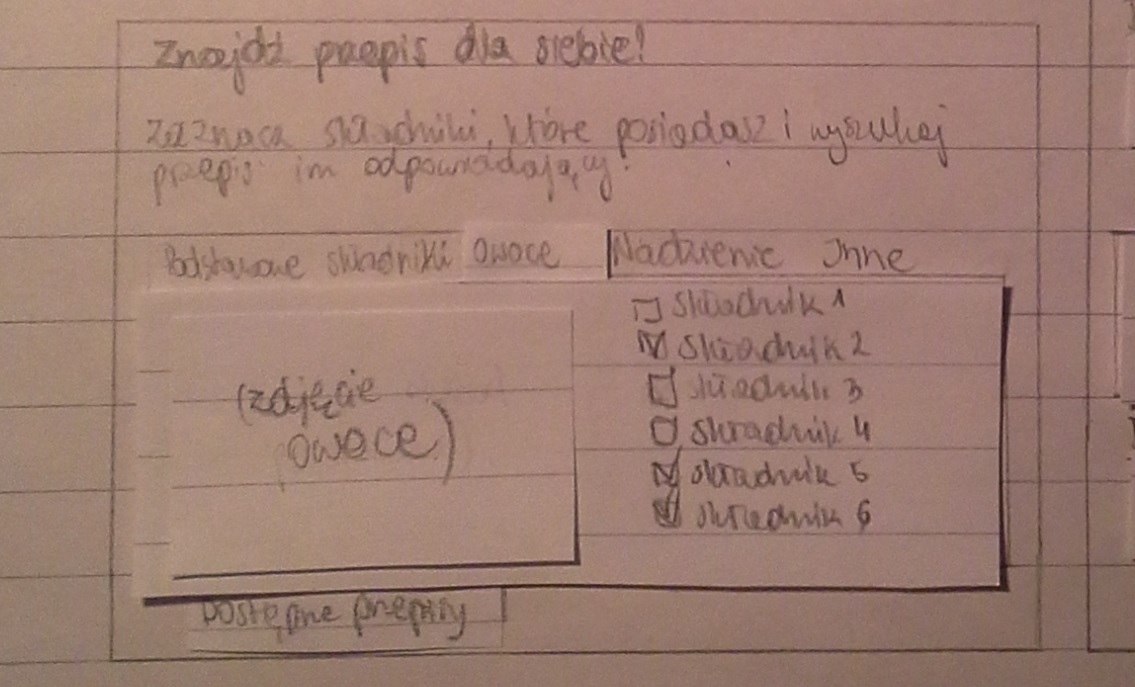 Znajdź przepis dla siebie!
Zaznacz składniki, które posiadasz i wyszukaj
przepis im odpowiadający.
Podstawowe składniki Owoce Nadzienie Inne
Składnik 1
Składnik 2
Składnik 3
Składnik 4
składnik 5
składnik 6
(zdjęcie
owoce)
Dostępne przepisy